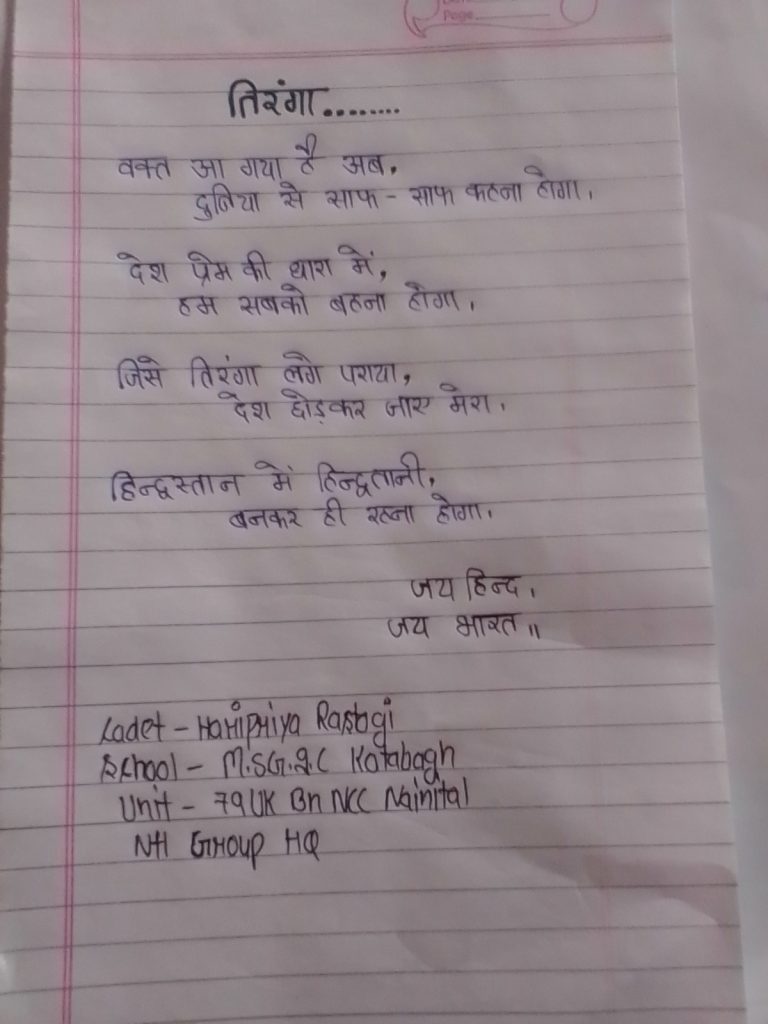 Page
तिरंगा........
वक्त आ गया है अब,
दुनिया से साफ - साफ कहना होगा।
देश प्रेम की धारा में,
हम सबको बहना होगा।
जिसे तिरंगा लगे पराया,
देश छोड़कर जाए मेरा।
हिन्दुस्तान में हिन्दुतानी,
बनकर ही रहना होगा।
जय हिन्द।
जय भारत॥
Cadet - Haripriya Rastogi
School - M.SG.I.C Kotabagh
Unit - 79 UK Bn NCC Nainital
Group HQ